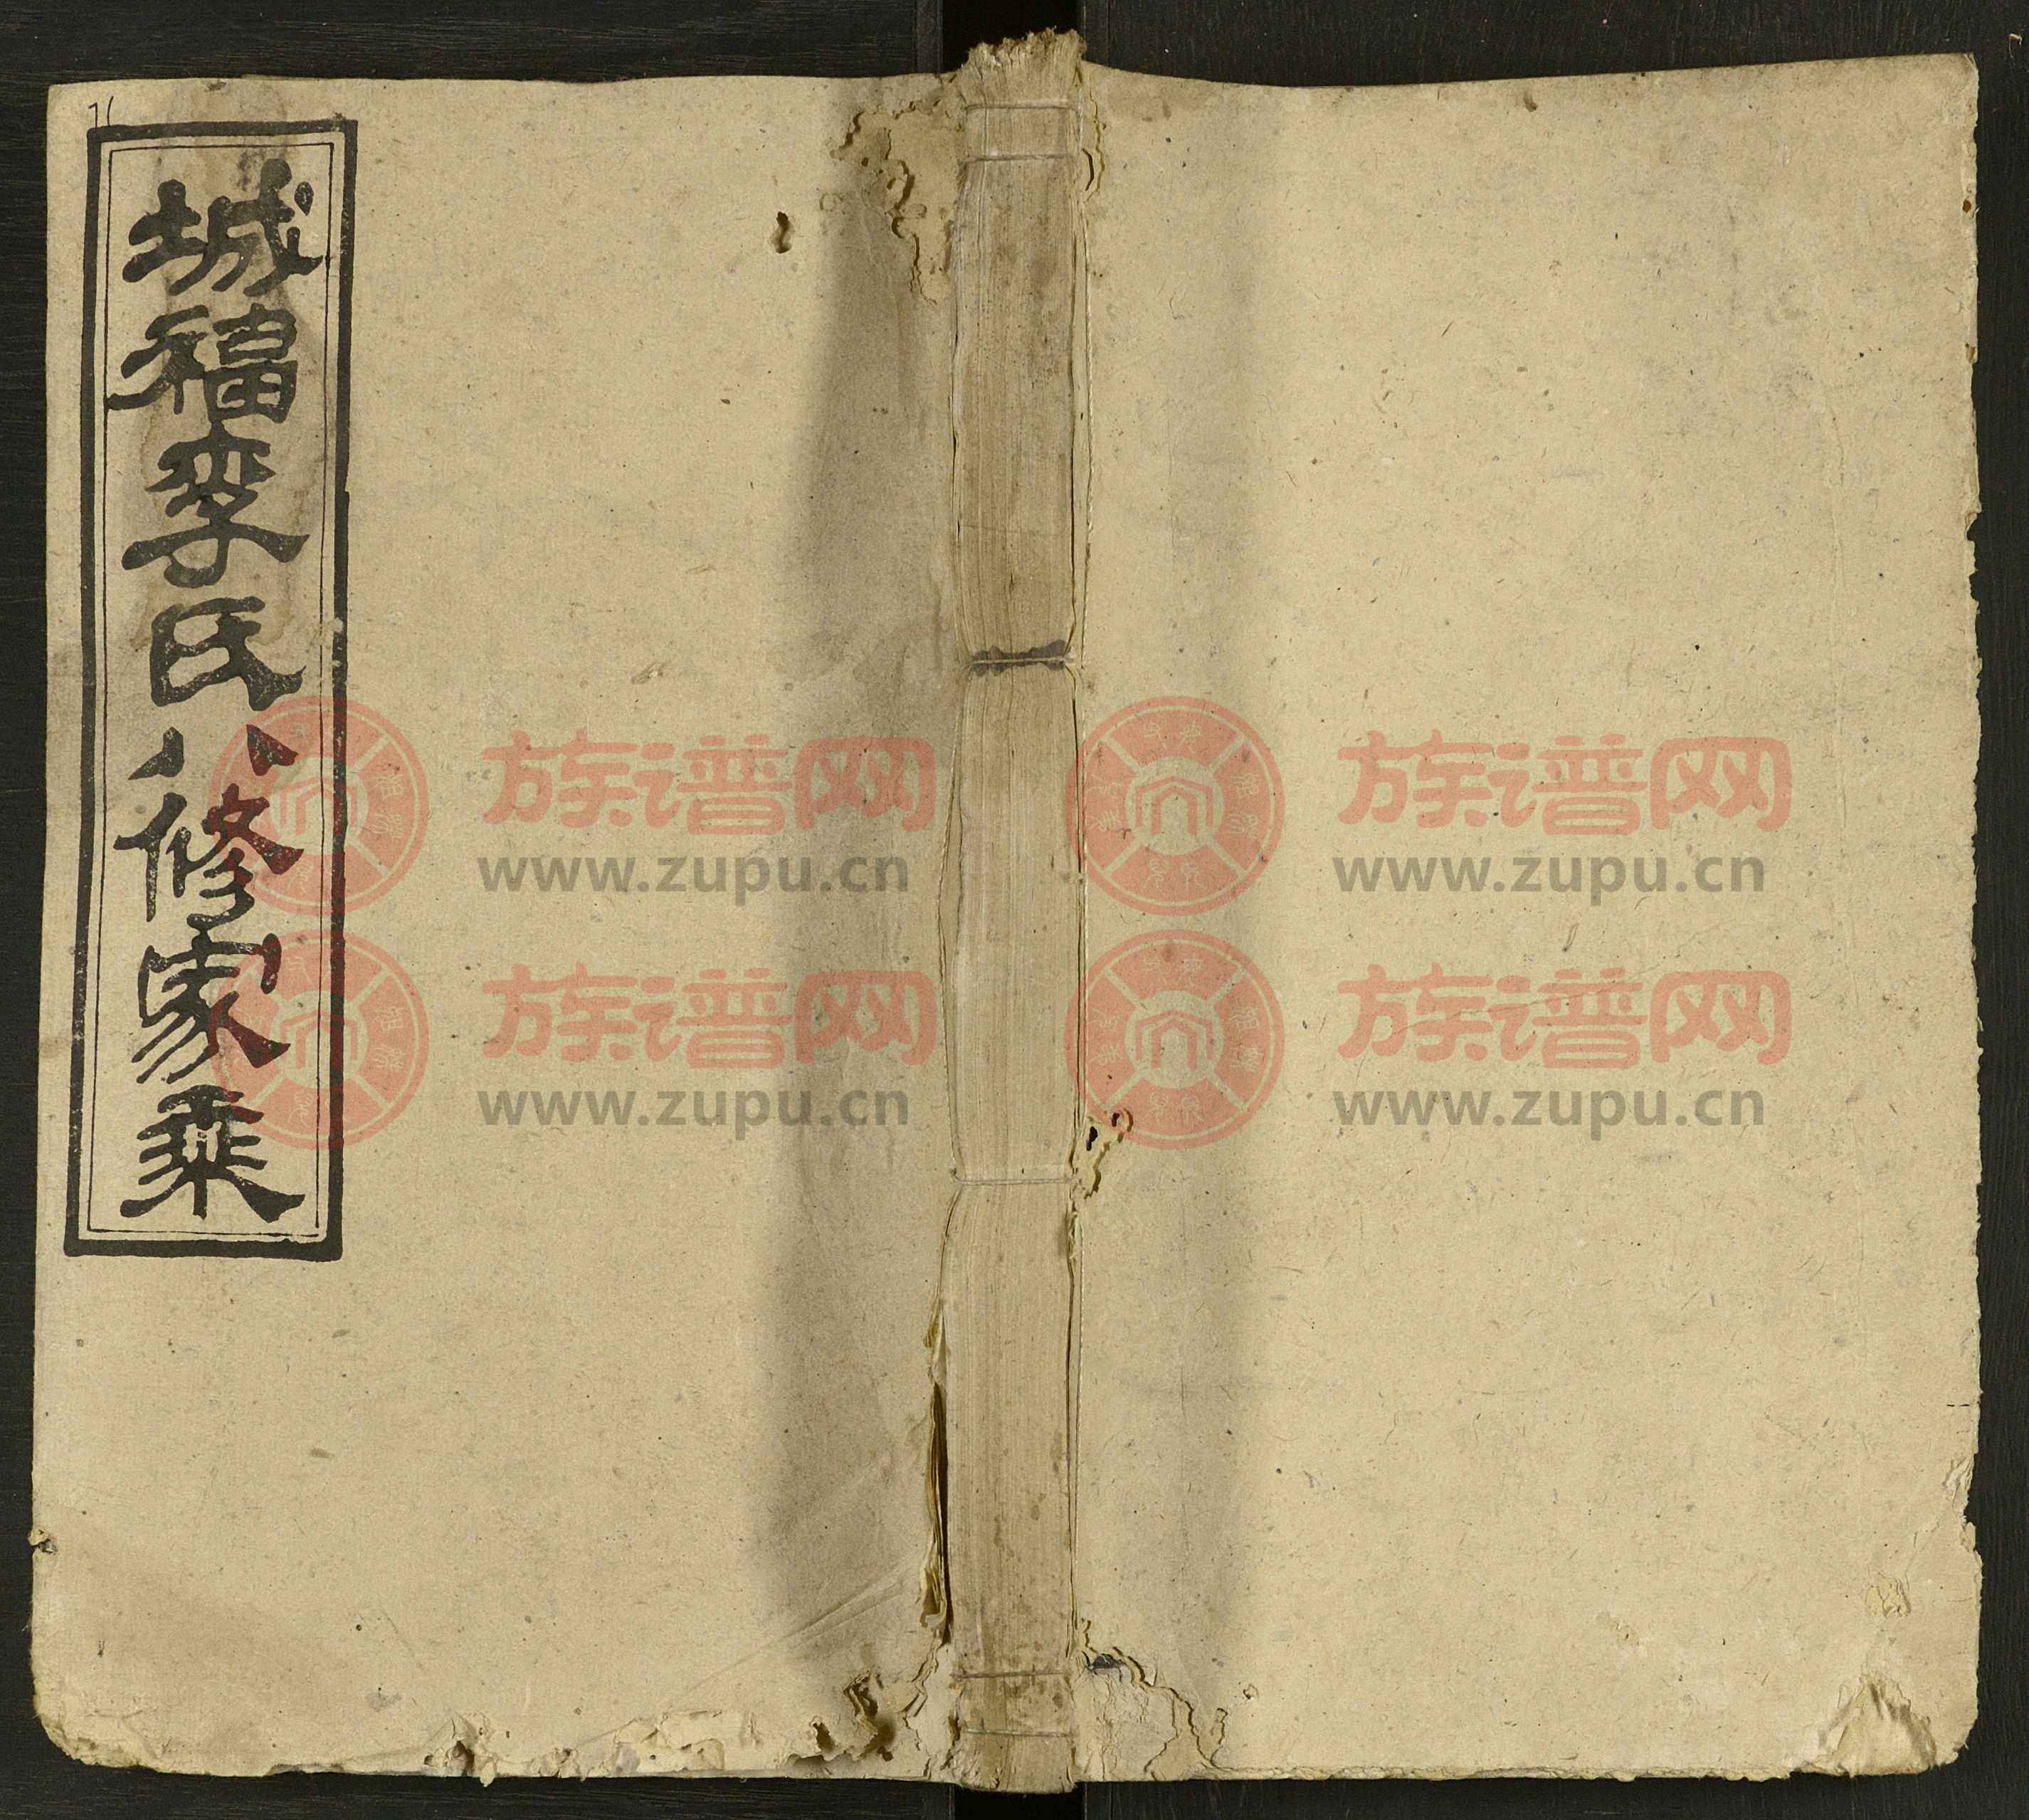 城福李氏八修家乘
族谱网
www.zupu.cn
族谱网
www.zupu.cn
族谱网
www.zupu.cn
族谱网
www.zupu.cn